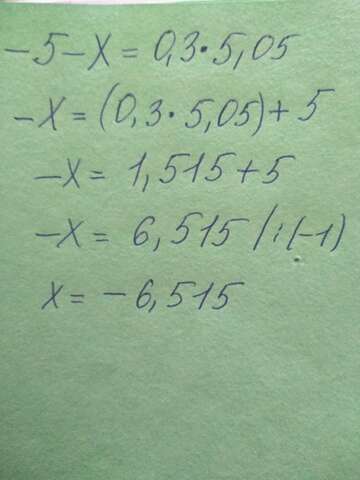 -5-x=0,3·5,05
-x=(0,3·5,05)+5
-x=1,515+5
-x=6,515/:(-1)
x=-6,515